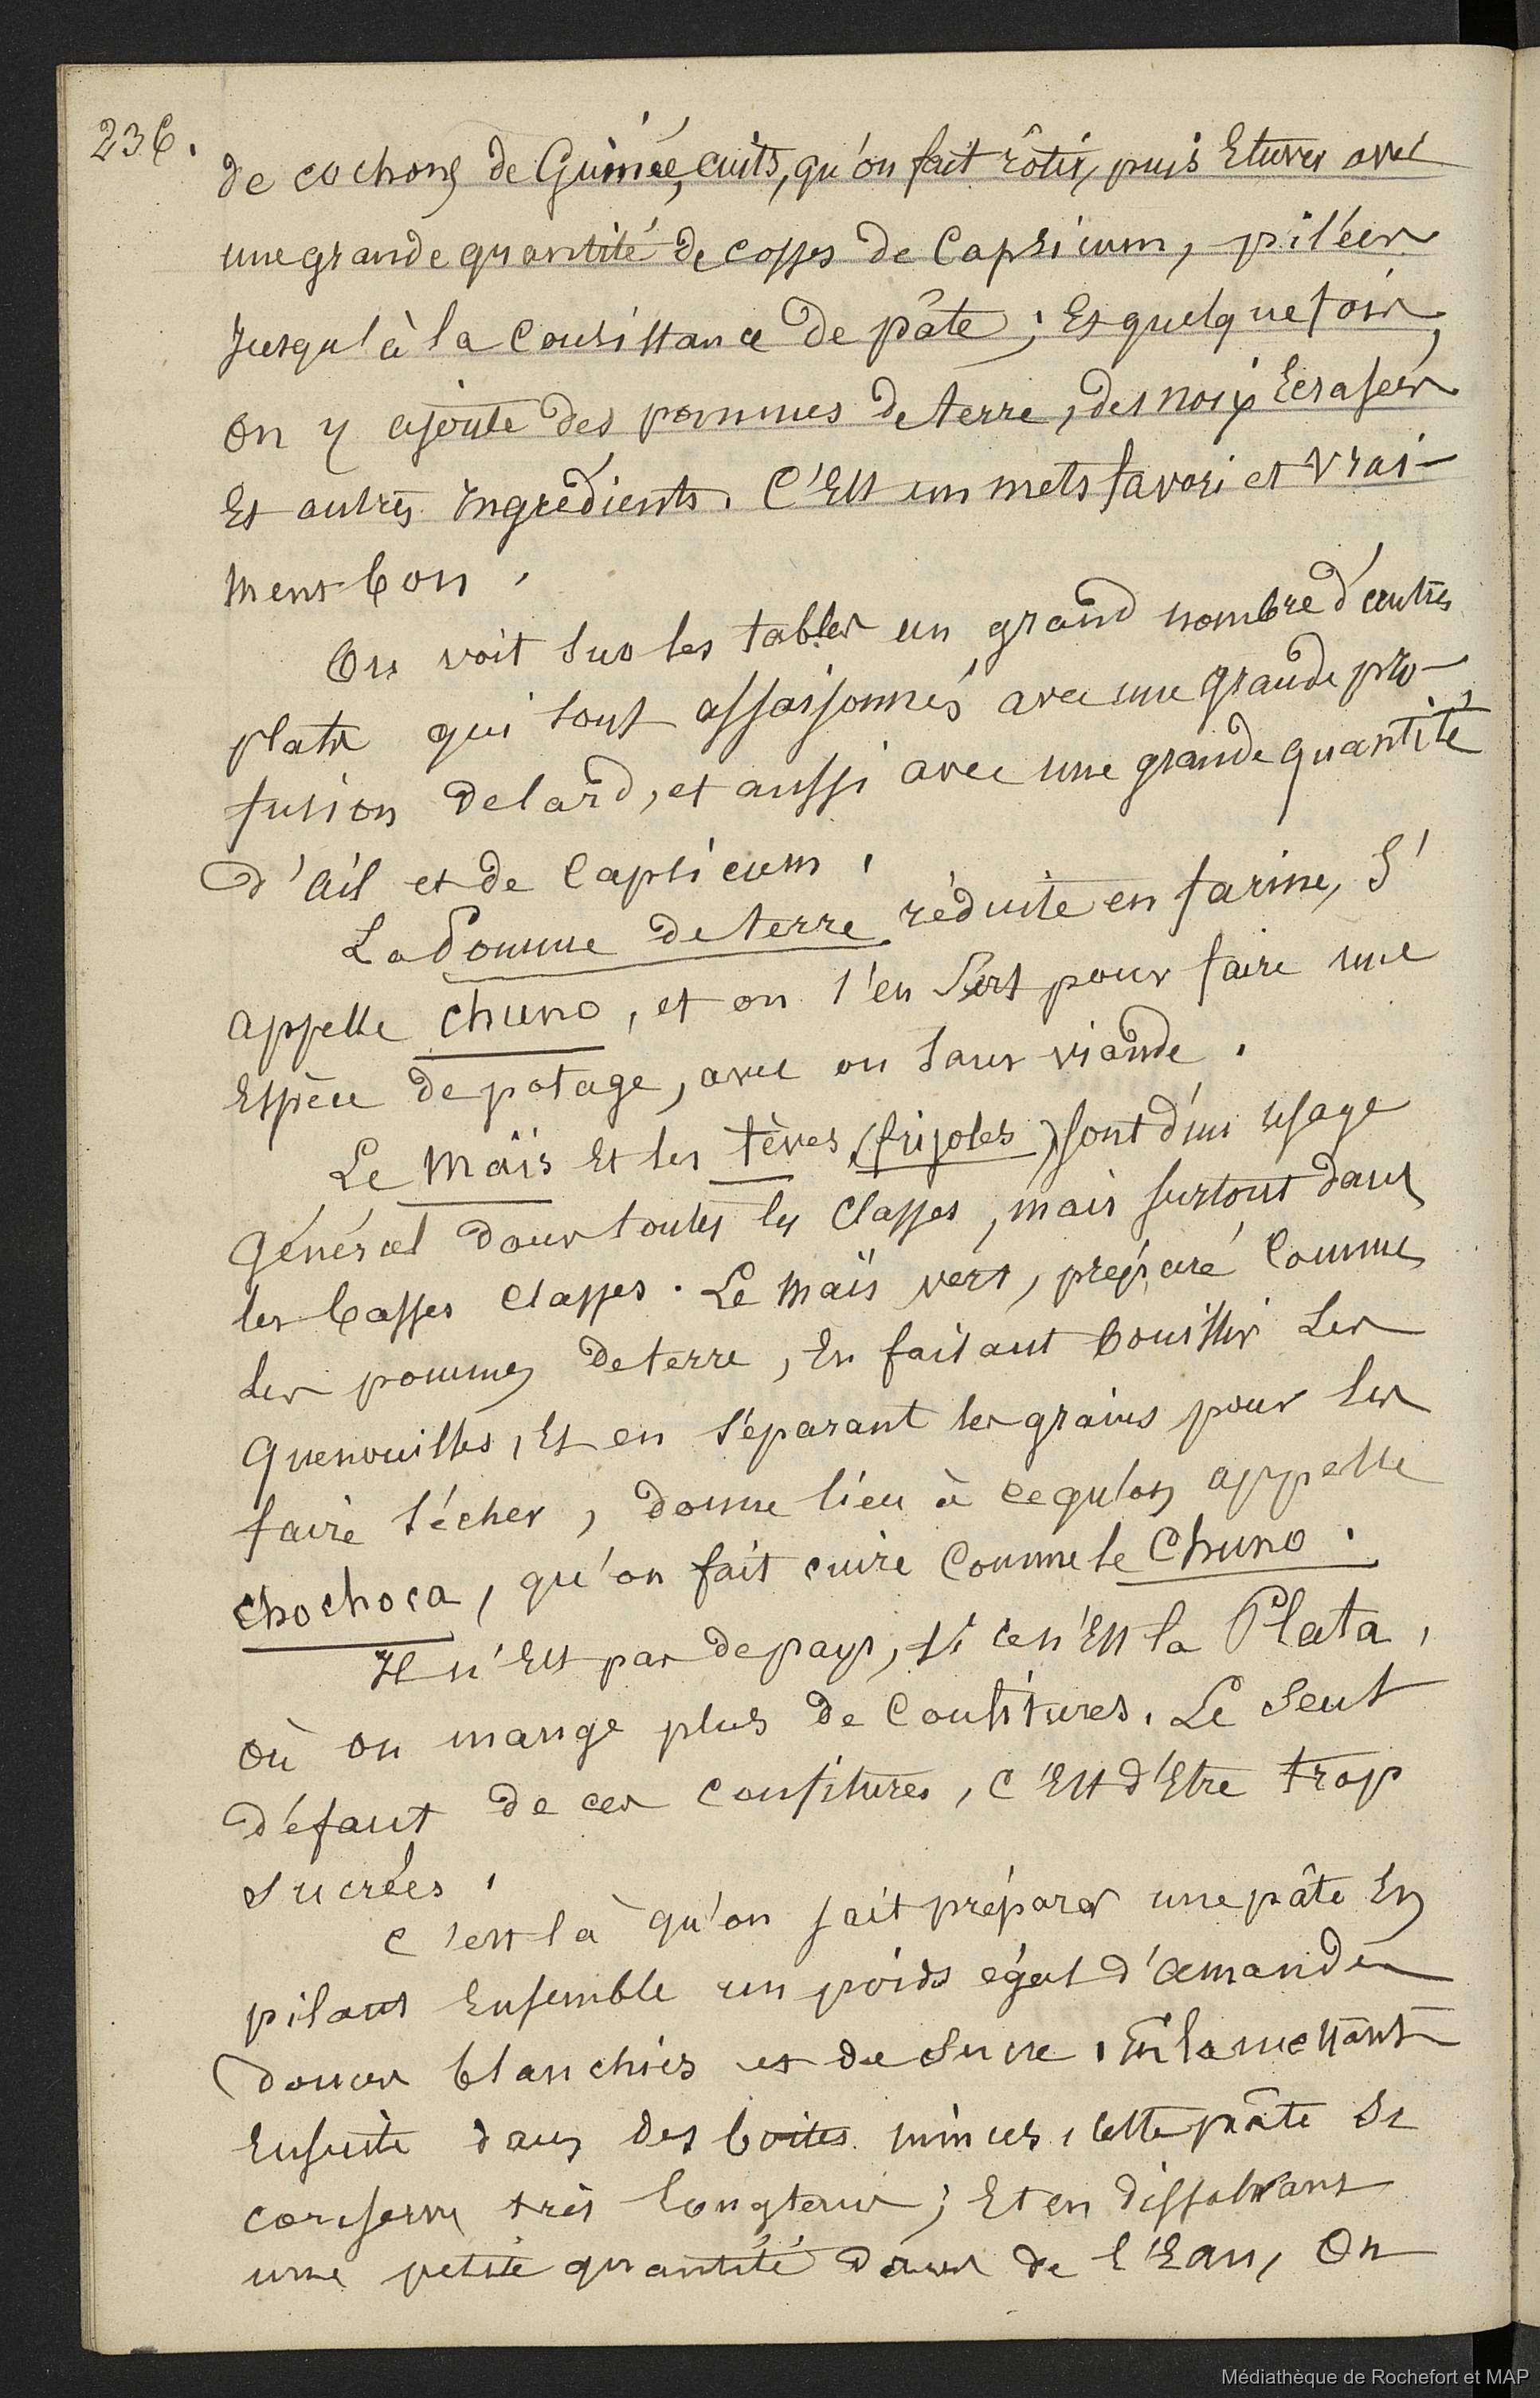 236.
de cochons de Guinée, cuits, qu'on fait rôtir, puis Etuver avec
une grande quantité de cosses de Capsicum, pilées
jusqu'à la Consistance de pâte ; Et quelquefois,
on y ajoute des pommes de terre, des noix Ecrasées
Et autres Ingrédients. C'Est un mets favori et vrai-
ment bon.
On voit sur les tables un grand nombre d'autres
plats qui sont assaisonnés avec une grande pro-
fusion de lard, et aussi avec une grande quantité
d'ail et de Capsicum.
La Pomme de terre réduite en farine, S'
appelle chuno, et on s'en sert pour faire une
Espèce de potage, avec ou sans viande.
Le Maïs Et les fèves (frijoles) sont d'un usage
Général dans toutes les Classes, mais surtout dans
les basses Classes. Le Maïs vert, préparé Comme
Les pommes de terre, En faisant bouillir Les
Quenouilles, Et en séparant les grains pour Les
faire sécher, donne lieu à ce qu'on appelle
chochoca, qu'on fait cuire Comme le Chuno.
Il n'Est pas de pays, si ce n'Est la Plata,
où on mange plus de Confitures. Le Seul
défaut de ces confitures, c'Est d'Etre trop
sucrées.
C'est là qu'on sait préparer une pâte En
pilant Ensemble un poids égal d'amandes
douces blanchies et de Sucre. En la mettant
Ensuite dans des boites minces, cette pâte se
conserve très longtems ; Et en dissolvant
une petite quantité dans de l'Eau, On
Médiathèque de Rochefort et MAP